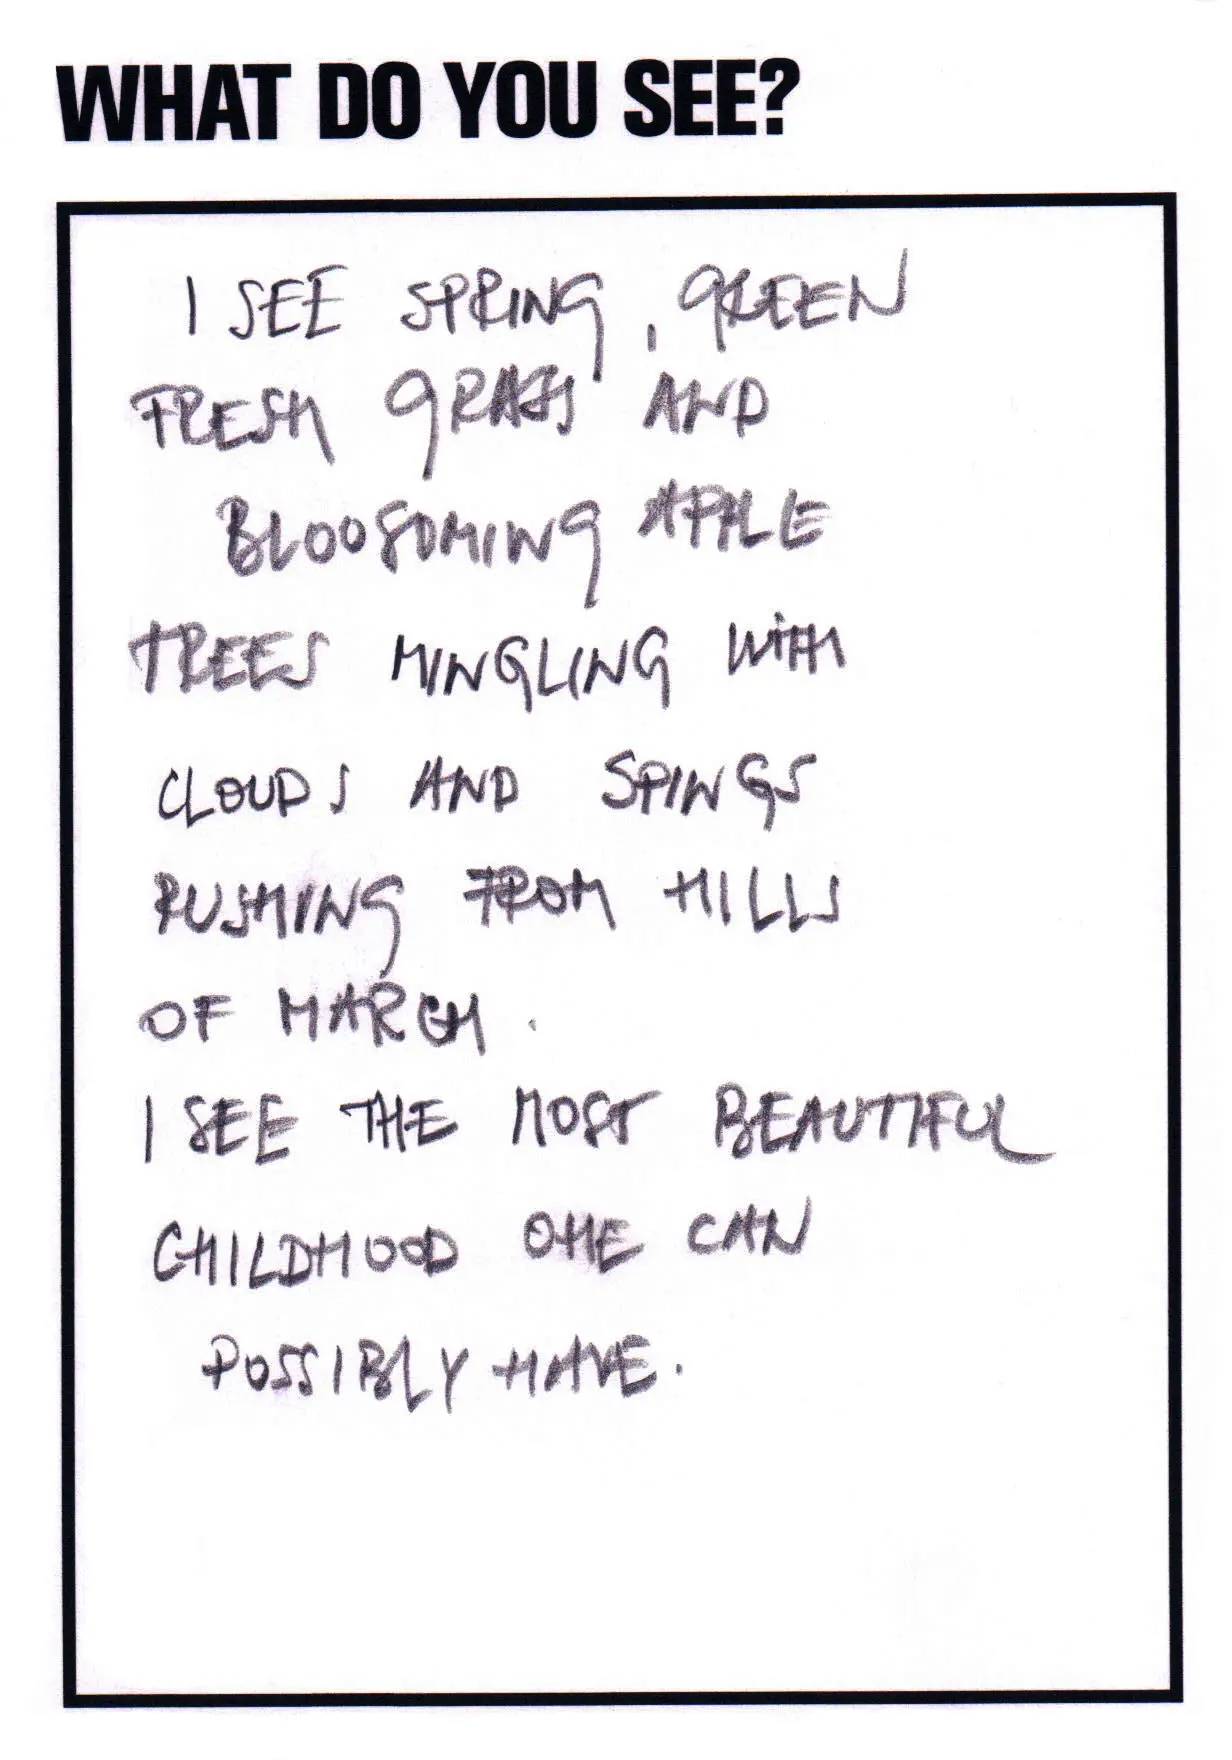 WHAT DO YOU SEE?
I SEE SPRING, GREEN
FRESH GRASS AND
BLOOSOMING APPLE
TREES MINGLING WITH
CLOUDS AND SPINGS
RUSHING FROM HILLS
OF MARCH.
I SEE THE MOST BEAUTIFUL
CHILDHOOD ONE CAN
POSSIBLY HAVE.